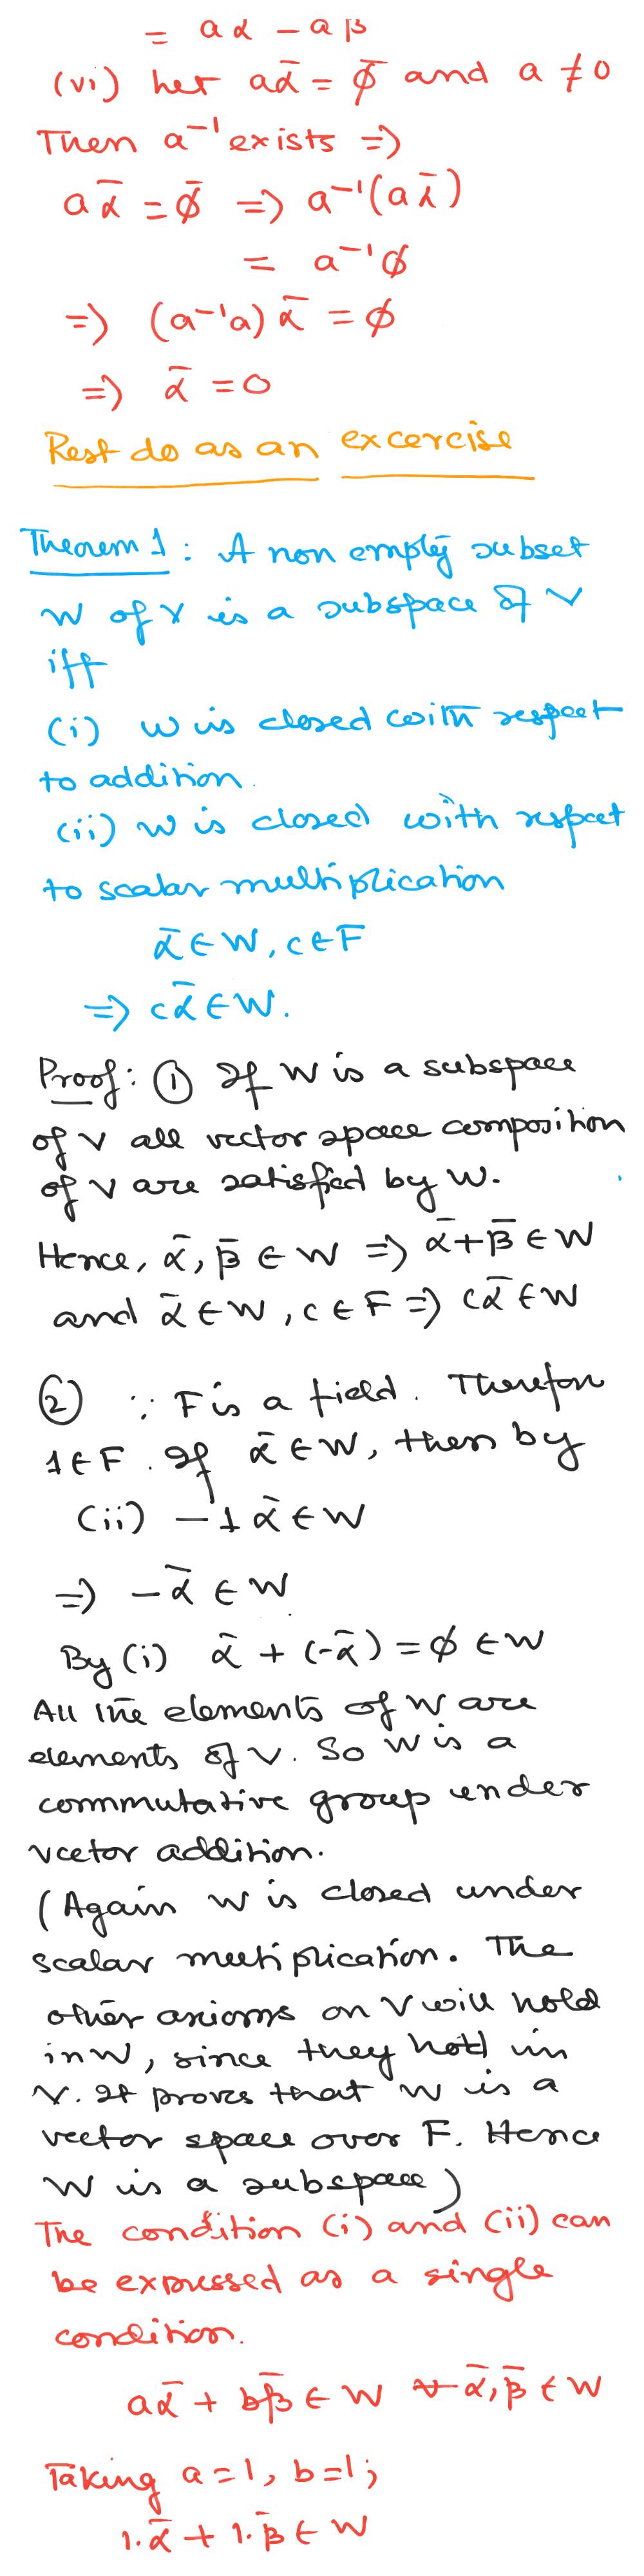 = aα - aβ
(vi) het aᾱ = ϕ̄ and a ≠ 0
Then a⁻¹ exists =>
aᾱ = ϕ̄ => a⁻¹(aᾱ)
= a⁻¹ϕ
=> (a⁻¹a) ᾱ = ϕ
=> ᾱ = 0
Rest do as an excercise
Theorem 1 : A non empty subset
W of V is a subspace of V
iff
(i) W is closed with respect
to addition.
(ii) W is closed with respect
to scalar multiplication
ᾱ ∈ W, c ∈ F
=> cᾱ ∈ W.
Proof: ① If W is a subspace
of V all vector space composition
of V are satisfied by W.
Hence, ᾱ, β̄ ∈ W => ᾱ+β̄ ∈ W
and ᾱ ∈ W, c ∈ F => cᾱ ∈ W
② ∵ F is a field. Therefore
1 ∈ F. If ᾱ ∈ W, then by
(ii) -1 ᾱ ∈ W
=> -ᾱ ∈ W
By (i) ᾱ + (-ᾱ) = ϕ ∈ W
All the elements of W are
elements of V. So W is a
commutative group under
vector addition.
(Again W is closed under
scalar multiplication. The
other axioms on V will hold
in W, since they hold in
V. It proves that W is a
vector space over F. Hence
W is a subspace)
The condition (i) and (ii) can
be expressed as a single
condition.
aᾱ + bβ̄ ∈ W ∀ ᾱ, β̄ ∈ W
Taking a=1, b=1;
1.ᾱ + 1.β̄ ∈ W